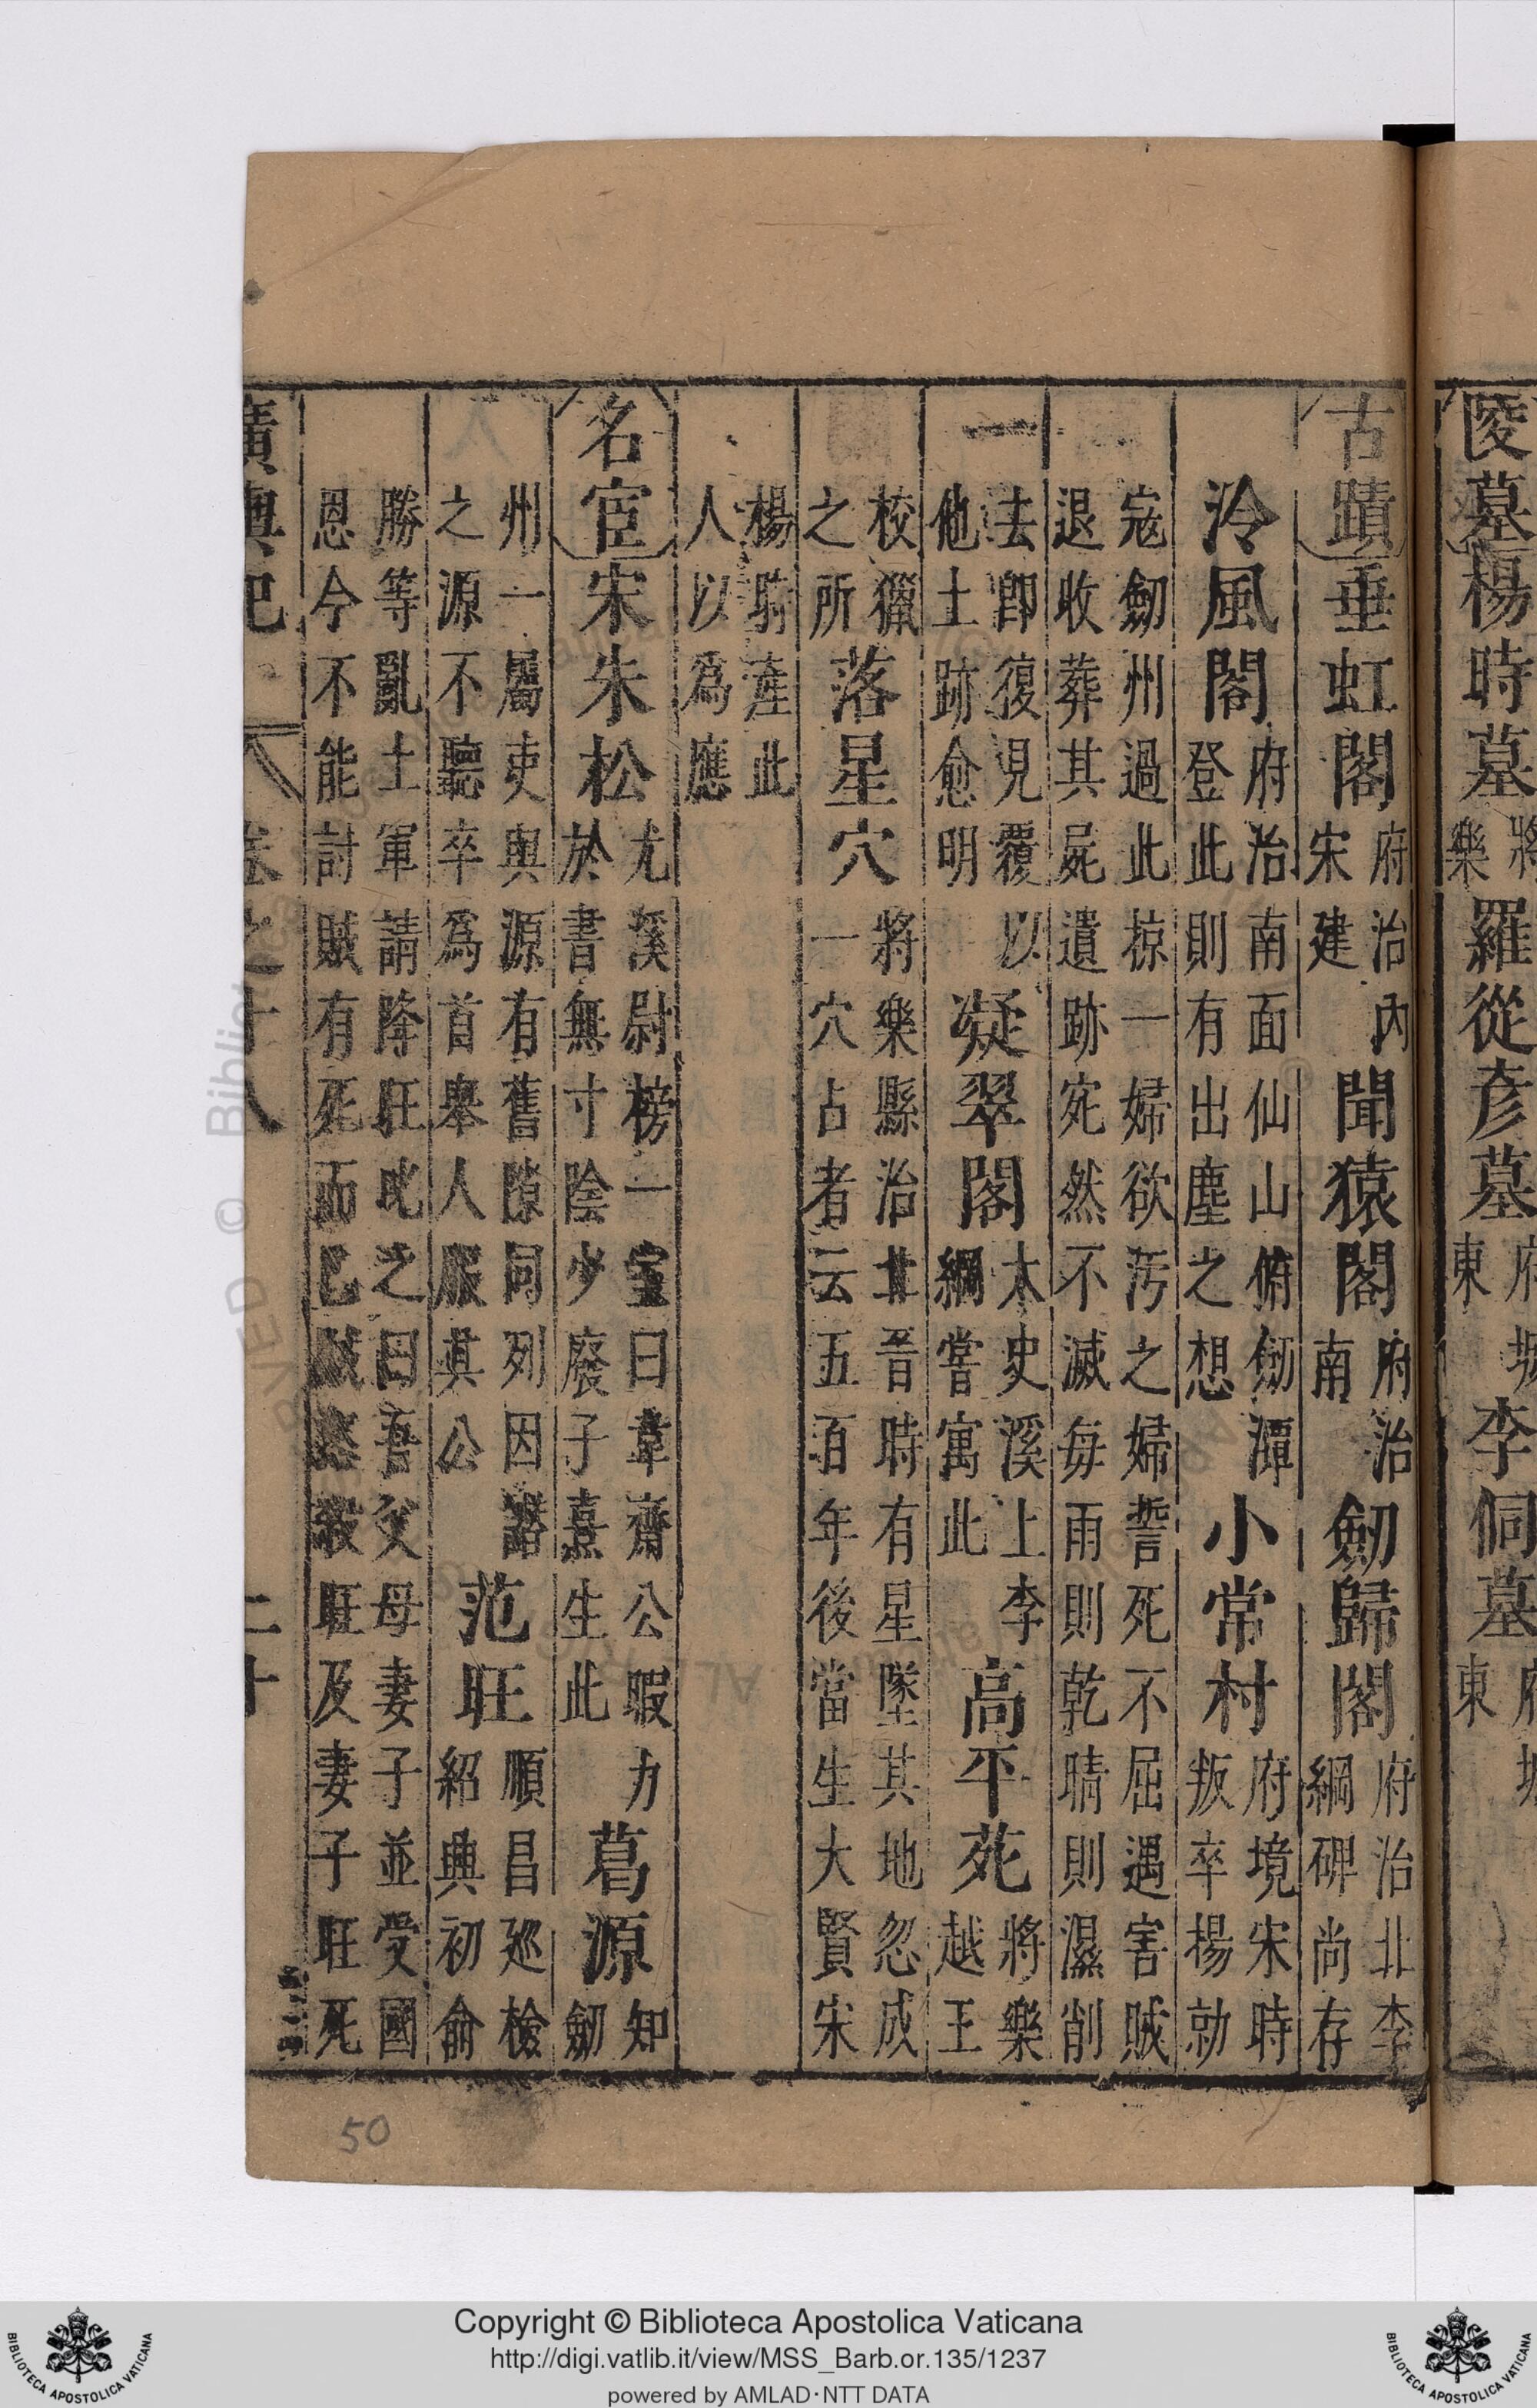 陵墓楊時墓將樂羅從彦墓府城東李侗墓府城東
古蹟垂虹閣府治内宋建聞猿閣府治南劒歸閣府治北李綱碑尚存
泠風閣府治南面仙山俯劒潭登此則有出塵之想小常村府境宋時叛卒楊勍
寇劒州過此掠一婦欲汚之婦誓死不屈遇害賊退收葬其屍遺跡宛然不滅每雨則乾晴則濕削
去卽復見覆以他土跡愈明凝翠閣太史溪上李綱嘗寓此高平苑將樂越王
校獵之所落星穴將樂縣治北晋時有星墜其地忽成一穴占者云五百年後當生大賢宋
楊時產此人以爲應
名宦宋朱松尤溪尉榜一室曰韋齋公暇力於書無寸陰少廢子熹生此葛源知劒
州一屬吏與源有舊隙同列因譖之源不聽卒爲首舉人服其公范旺順昌廵檢紹興初俞
勝等亂土軍請降旺叱之曰吾父母妻子並受國恩今不能討賊有死而已賊怒殺旺及妻子旺死
廣輿記 卷之十八 二十
50
Copyright © Biblioteca Apostolica Vaticana
http://digi.vatlib.it/view/MSS_Barb.or.135/1237
powered by AMLAD·NTT DATA
BIBLIOTECA APOSTOLICA VATICANA
BIBLIOTECA APOSTOLICA VATICANA